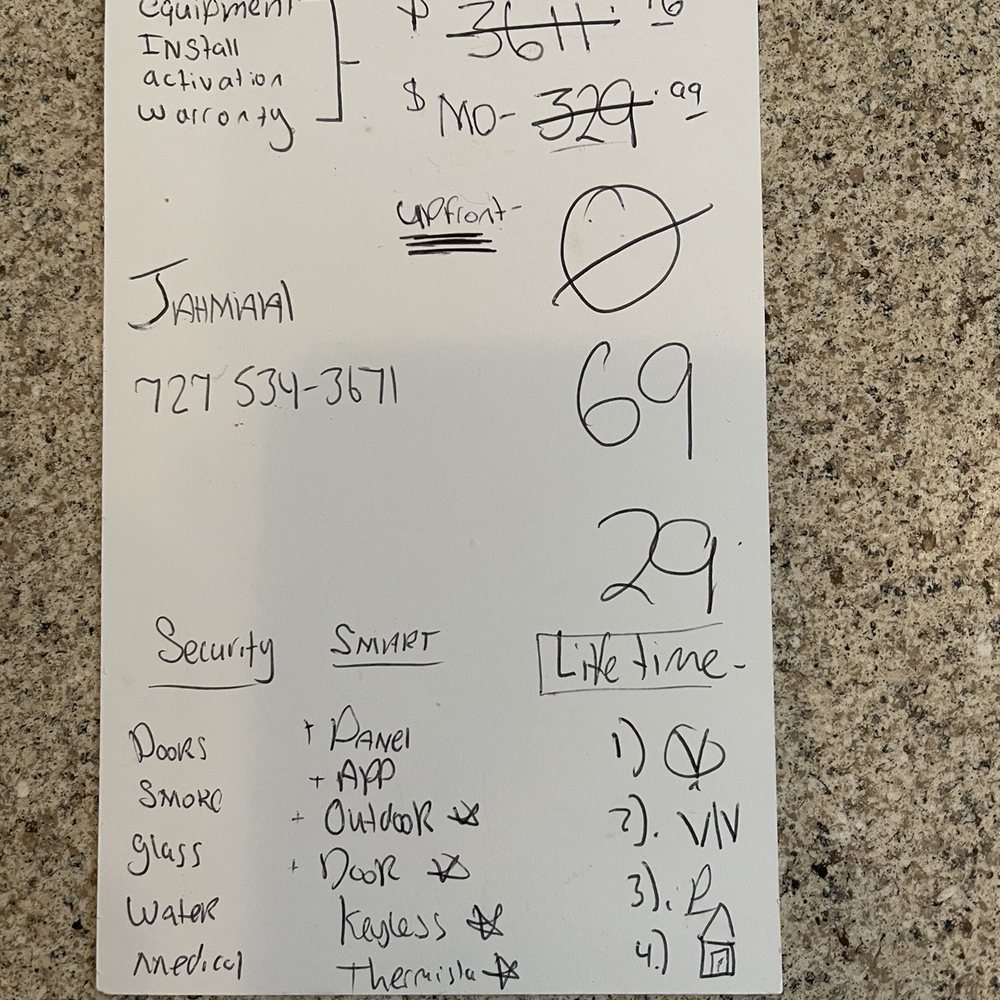 equipment
Install
activation
warronty
$ 3611.16
$ MO- 329.99
upfront- 0
JAHMIAIAI
727 534-3671
69
29
Security
Doors
Smoke
glass
Water
medical
SMART
+ Panel
+ APP
+ Outdoor ☆
+ Door ☆
Keyless ☆
Thermista ☆
Life time-
1) V
2). V/V
3). P
4.)